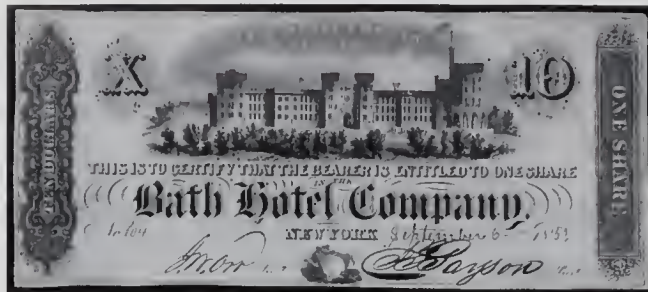 X 10
TEN DOLLARS.
ONE SHARE
THIS IS TO CERTIFY THAT THE BEARER IS ENTITLED TO ONE SHARE
IN THE
Bath Hotel Company.
NEW YORK September 6